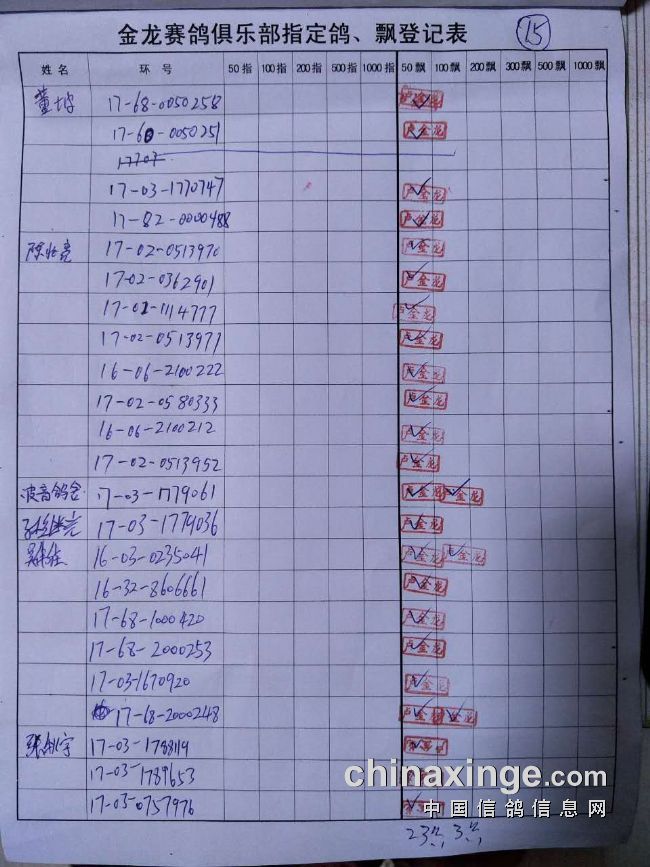 金龙赛鸽俱乐部指定鸽、飘登记表 15
姓名 环号 50指 100指 200指 500指 1000指 50飘 100飘 200飘 300飘 500飘 1000飘
17-68-0050258
17-60-0050251 卢金龙
17-03-1770747 卢金龙
17-82-0000488 卢金龙
17-02-0513970 卢金龙
17-02-0362901 卢金龙
17-02-1114777 卢金龙
17-02-0513977 卢金龙
16-06-2100222 卢金龙
17-02-0580333 卢金龙
16-06-2100212 卢金龙
17-02-0513952 卢金龙
波音鸽舍 17-03-1779061 卢金龙 卢金龙
17-03-1779036 卢金龙
16-03-0235041 卢金龙 卢金龙
16-32-8606661 卢金龙
17-68-1000420 卢金龙
17-68-2000253 卢金龙
17-03-1670920 卢金龙
17-68-2000248 卢金龙 卢金龙
17-03-178819
17-03-1789653
17-03-0757976
chinaxinge.com
中国信鸽信息网